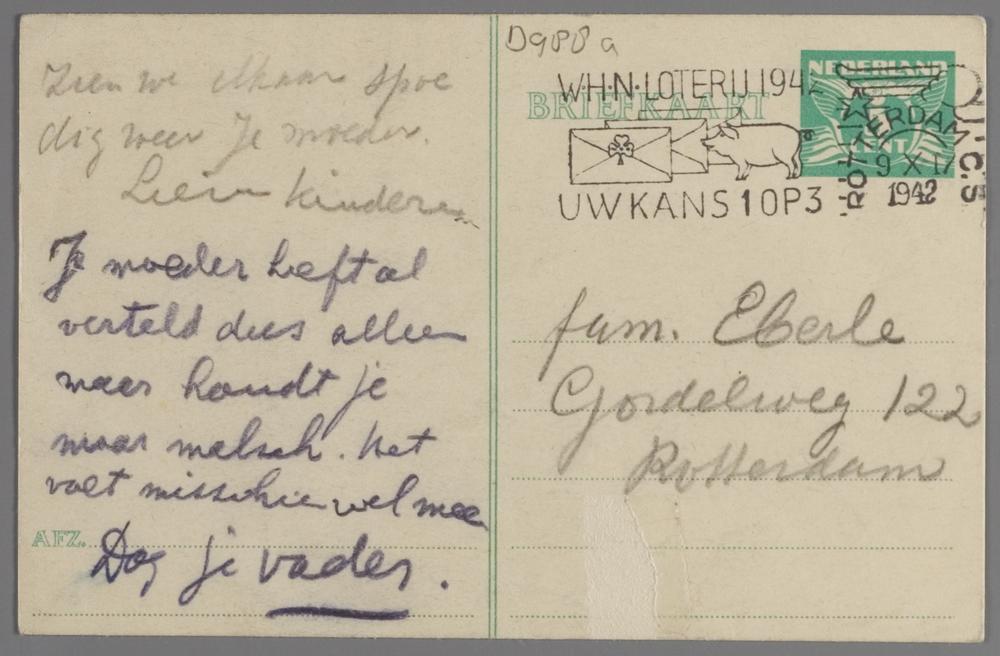 Zien we elkaar spoe
dig weer Je moeder.
Lieve kinderen
Je moeder heeft al
verteld dus alleen
maar houdt je
maar malsch. Het
valt misschien wel mee
AFZ.
Dag je vader.
D988a
W·H·N·LOTERIJ 1942
BRIEFKAART
UW KANS 1 OP 3
NEDERLAND
5
CENT
ROTTERDAM C.S
9 XII
1942
fam. Eberle
Gordelweg 122
Rotterdam